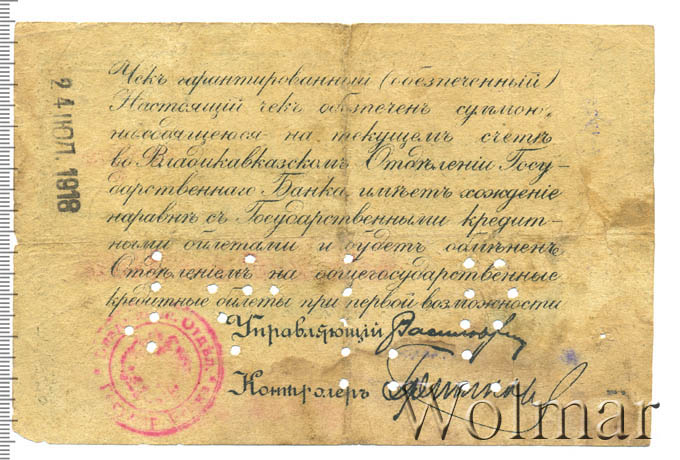 Чекъ гарантированный (обезпеченный)
Настоящій чекъ обезпеченъ суммою,
находящеюся на текущемъ счетѣ
во Владикавказскомъ Отдѣленіи Госу-
дарственнаго Банка, имѣетъ хожденіе
наравнѣ съ Государственными кредит-
ными билетами и будетъ обмѣненъ
Отдѣленіемъ на общегосударственные
кредитные билеты при первой возможности
Управляющій
Контролеръ
24 ІЮЛ. 1918
ОТДѢЛ.
Wolmar